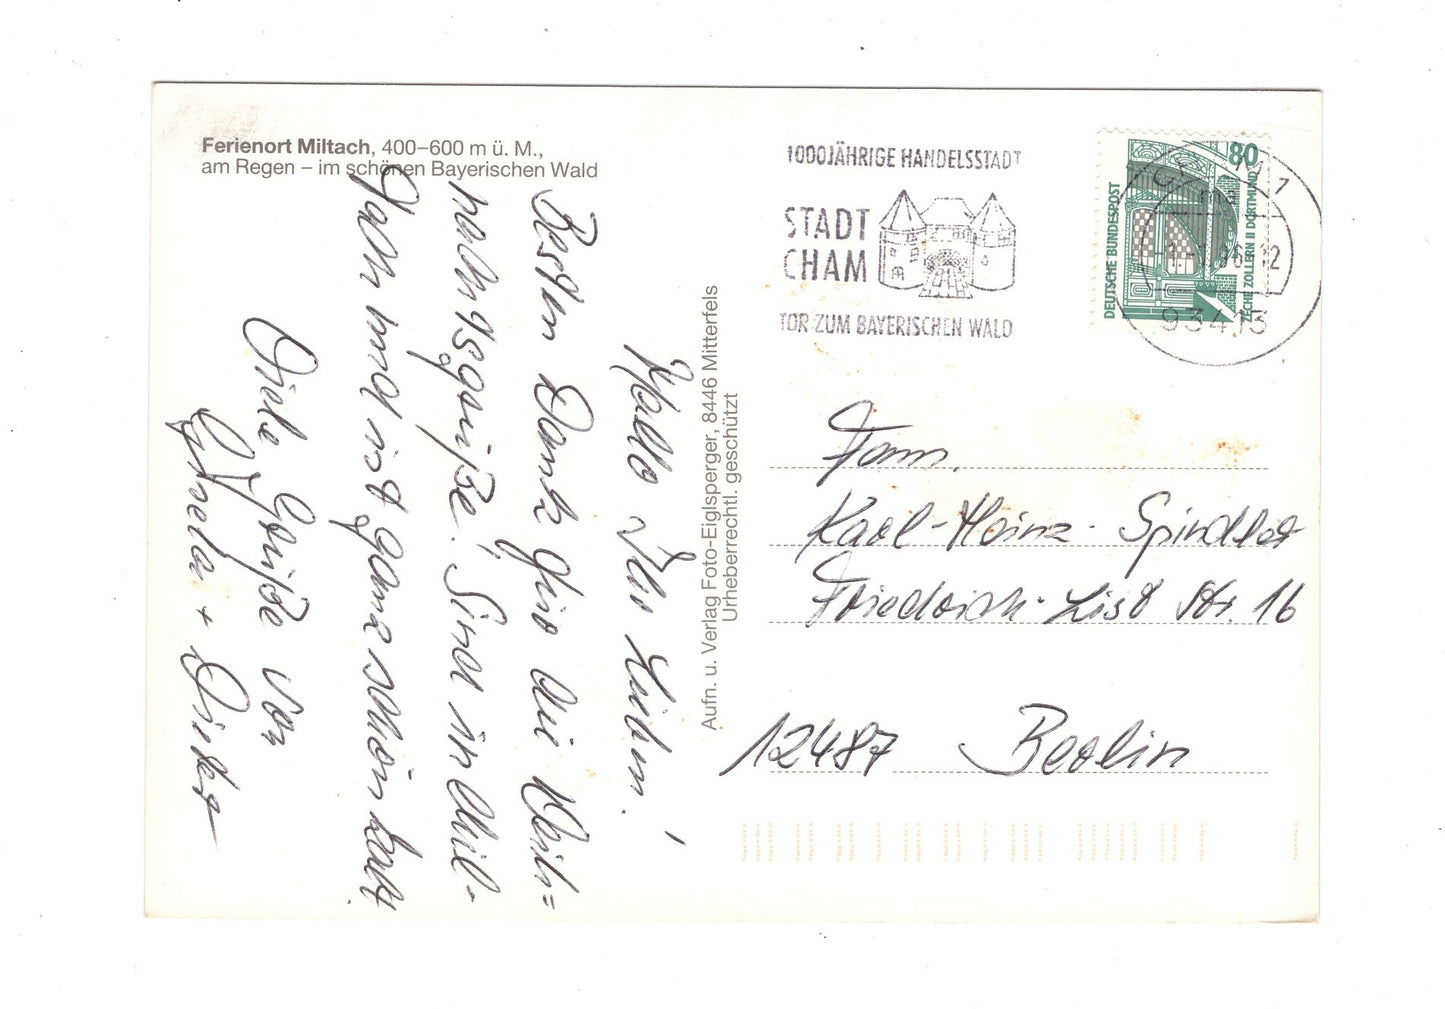 Ferienort Miltach, 400–600 m ü. M.,
am Regen – im schönen Bayerischen Wald
Hallo Ihr Lieben!
Besten Dank für die Weih=
nachtsgrüße! Sind in Mil-
tach und ist ganz schön kalt.
Viele Grüße von
+ Dieter
Aufn. u. Verlag Foto-Eiglsperger, 8446 Mitterfels
Urheberrechtl. geschützt
1000JÄHRIGE HANDELSSTADT
STADT
CHAM
TOR ZUM BAYERISCHEN WALD
80
DEUTSCHE BUNDESPOST
ZECHE ZOLLERN II DORTMUND
93413
Fam.
Karl-Heinz Spindler
Friedrich-List Str. 16
12487 Berlin